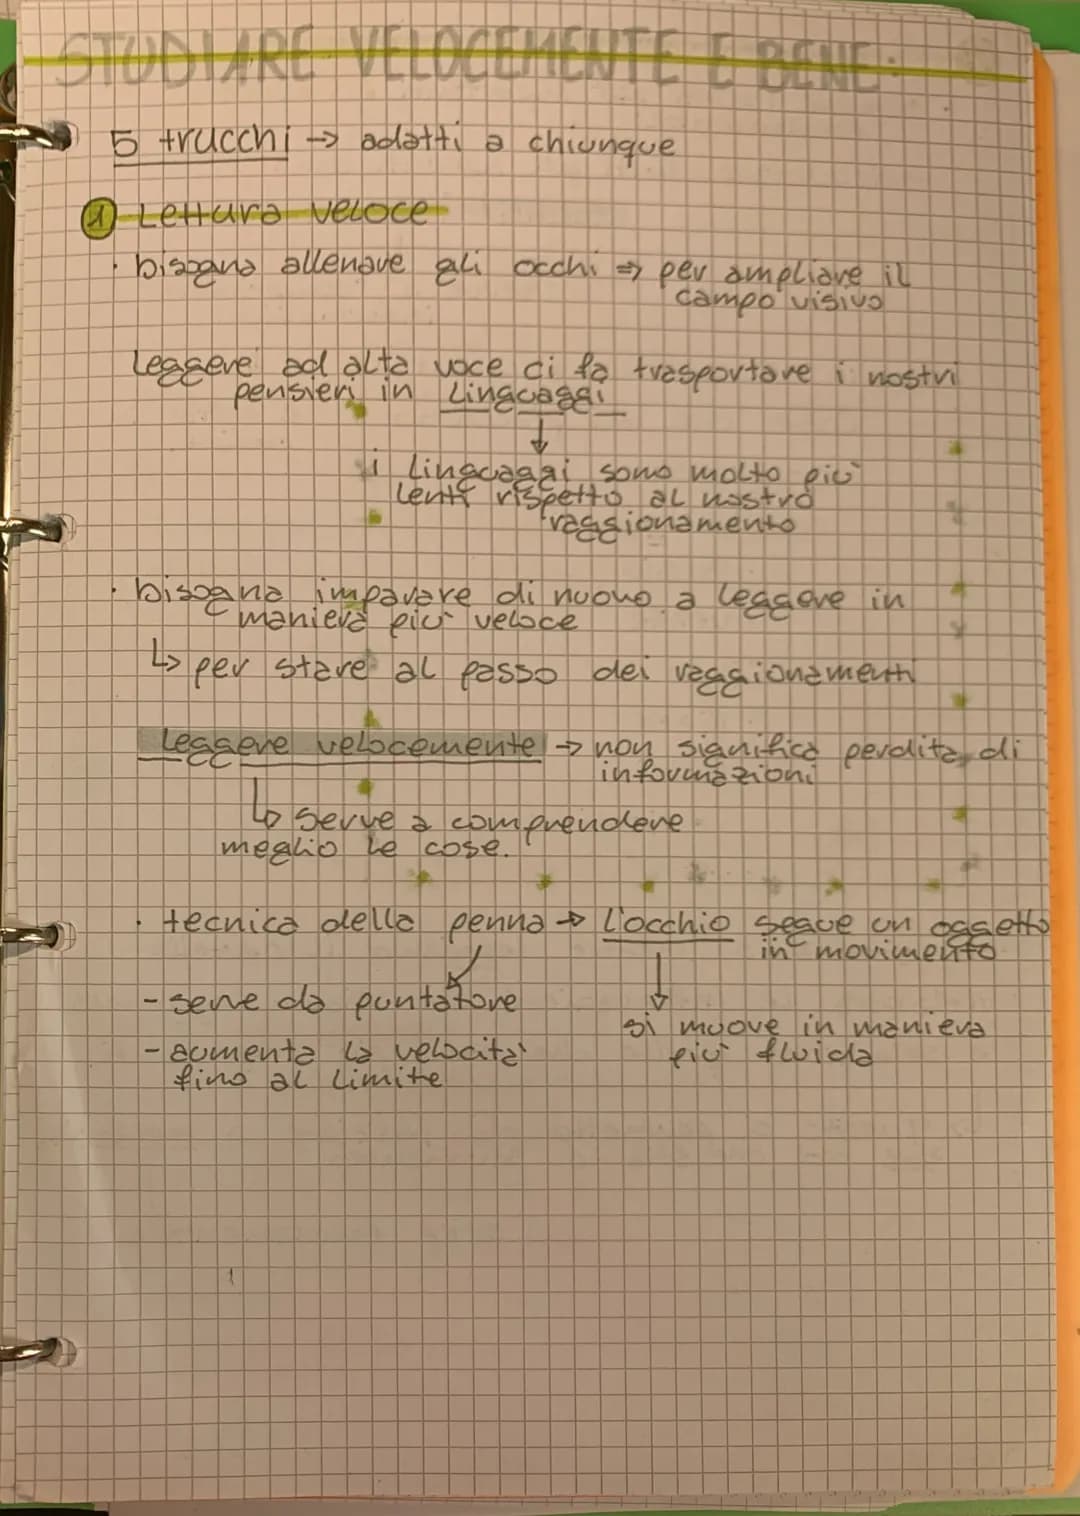 STUDIARE VELOCEMENTE E BENE:
5 trucchi → adatti a chiunque
1 Lettura veloce
· bisogna allenare gli occhi ⇒ per ampliare il
campo visivo
Leggere ad alta voce ci fa trasportare i nostri
pensieri in linguaggi
↓
i linguaggi sono molto più
lenti rispetto al nostro
raggionamento
· bisogna imparare di nuovo a leggere in
maniera più veloce
↳ per stare al passo dei raggionamenti
Leggere velocemente → non significa perdita di
informazioni
↳ serve a comprendere
meglio le cose.
· tecnica della penna → l'occhio segue un oggetto
in movimento
- serve da puntatore
si muove in maniera
più fluida
- aumenta la velocità
fino al limite